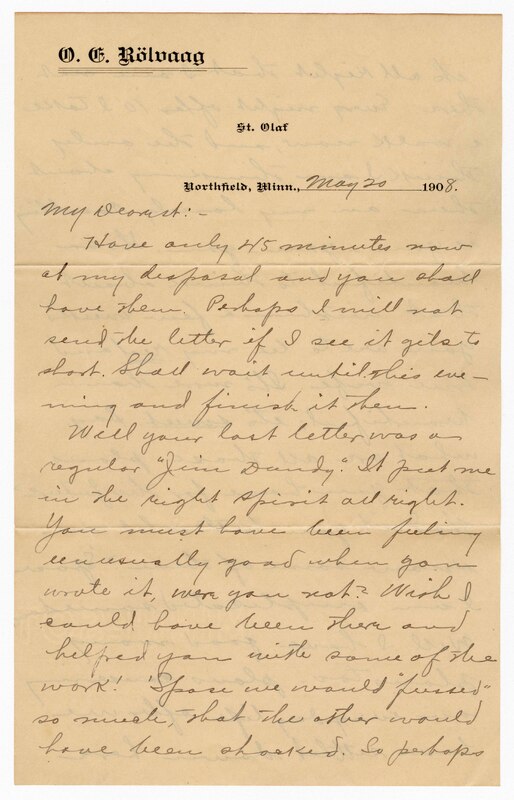 O. E. Rölvaag
St. Olaf
Northfield, Minn., May 20 1908.
My Dearest:-
Have only 45 minutes now
at my disposal and you shall
have them. Perhaps I will not
send the letter if I see it gets to
short. Shall wait until this eve-
ning and finish it then.
Well your last letter was a
regular "Jim Dandy". It put me
in the right spirit all right.
You must have been feeling
unusually good when you
wrote it, were you not? Wish I
could have been there and
helped you with some of the
work! 'Spose we would "fussed"
so much, that the other would
have been shocked. So perhaps